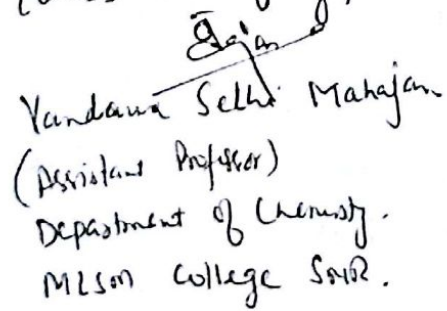 Vandana Sethi Mahajan
(Assistant Professor)
Department of Chemistry.
MLSM College SNR.